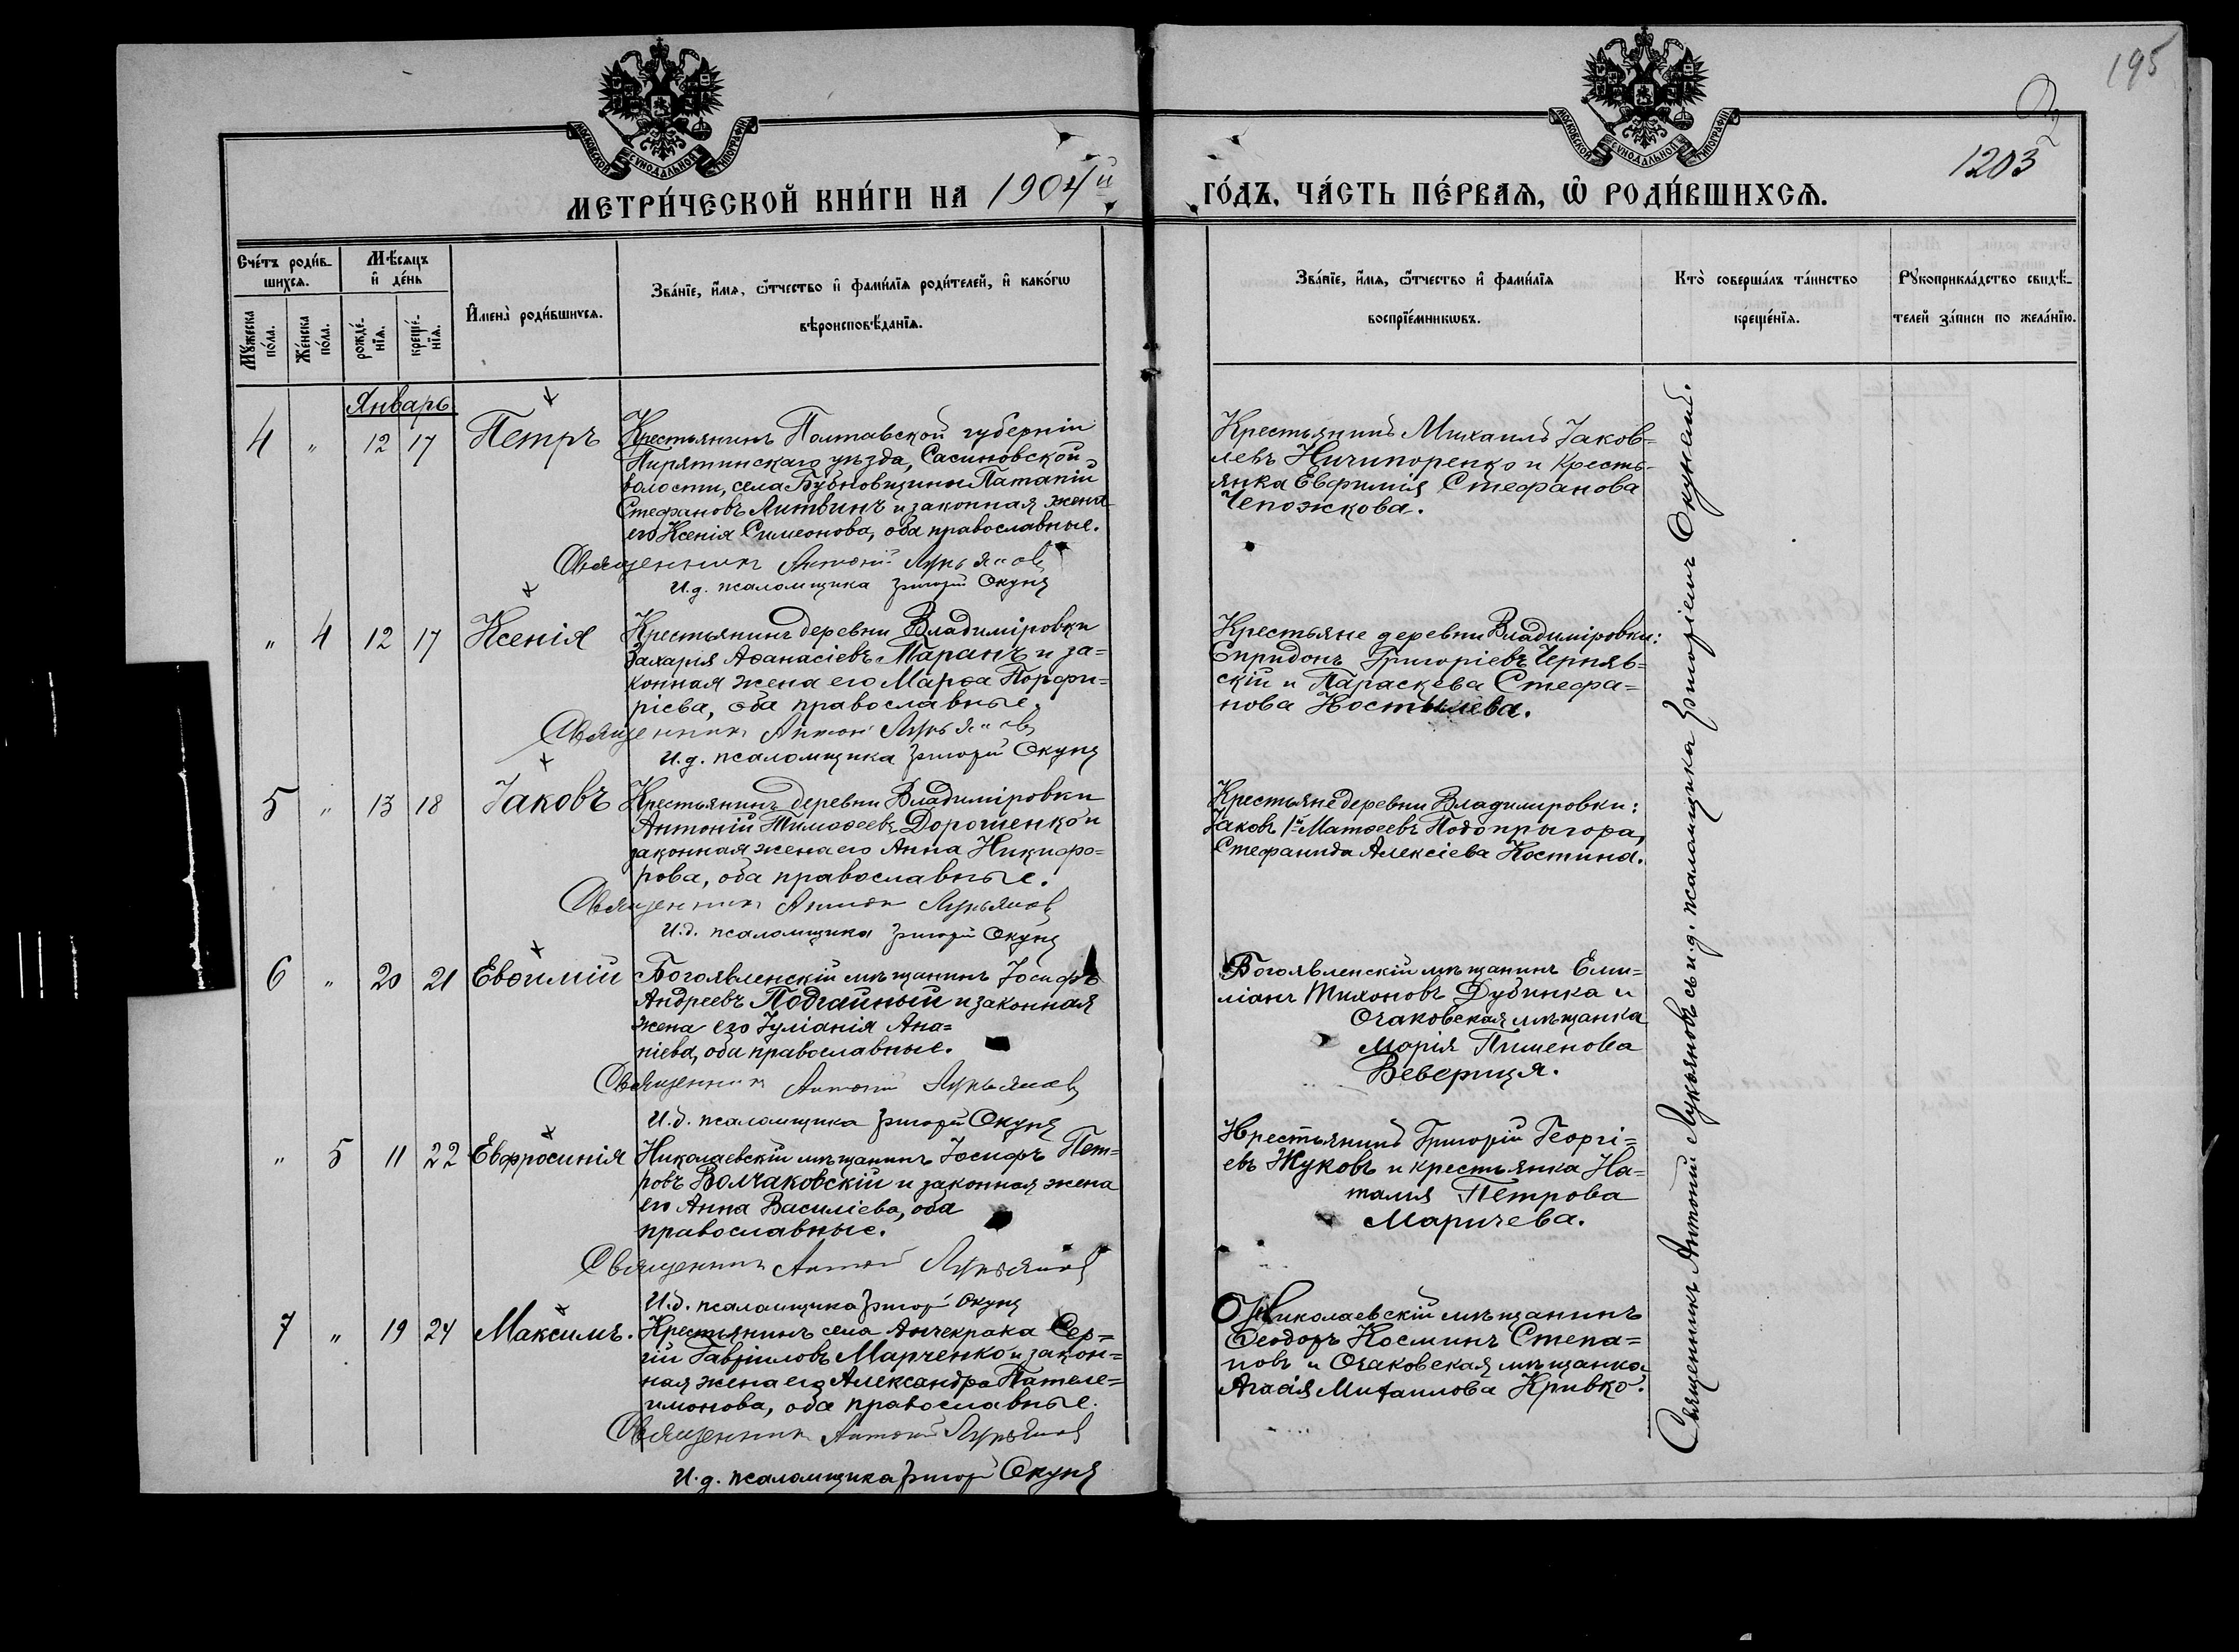 195
1203
МОСКОВСКОЙ СУНОДАЛЬНОЙ ТИПОГРАФІИ
МОСКОВСКОЙ СУНОДАЛЬНОЙ ТИПОГРАФІИ
МЕТРИ́ЧЕСКОЙ КНИ́ГИ НА 1904й ГО́ДЪ, ЧА́СТЬ ПЕ́РВАѦ, Ѡ҆ РОДИ́ВШИХСѦ.
Сче́тъ роди́в-
шихсѧ.
Мꙋ́жеска по́ла.
Же́нска по́ла.
Мѣ́сѧцъ
и҆ де́нь
рожде́-
нїѧ.
креще́-
нїѧ.
И҆мена̀ роди́вшихсѧ.
Зва́нїе, и҆́мѧ, ѻ҆́тчество и҆ фами́лїѧ роди́телей, и҆ како́гѡ
вѣроисповѣ́данїѧ.
Зва́нїе, и҆́мѧ, ѻ҆́тчество и҆ фами́лїѧ
воспрїе́мникѡвъ.
Кто̀ соверша́лъ та́инство
креще́нїѧ.
Рꙋкоприкла́дство свидѣ́-
телей за́писи по жела́нїю.
Январь
4 " 12 17 Петръ
Крестьянинъ Полтавской губерніи
Пирятинскаго уѣзда, Сасиновской
волости, села Бубновщины Патапій
Стефановъ Литвинъ и законная жена
его Ксенія Симеонова, оба православные.
Священникъ Антоній Лукьяновъ
И.д. псаломщика Григорій Окунь
Крестьянинъ Михаилъ Іаков=
левъ Ничипоренко и кресть-
янка Евфимія Стефанова
Чепожкова.
" 4 12 17 Ксенія
Крестьянинъ деревни Владиміровки
Захарія Аѳанасіевъ Маранъ и за=
конная жена его Марѳа Порфи=
ріева, оба православные.
Священникъ Антоній Лукьяновъ
И.д. псаломщика Григорій Окунь
Крестьяне деревни Владиміровки:
Спридонъ Григоріевъ Черняв=
скій и Параскева Стефа=
нова Костылева.
5 " 13 18 Іаковъ
Крестьянинъ деревни Владиміровки
Антоній Тимоѳеевъ Дорошенко и
законная жена его Анна Никифо=
рова, оба православные.
Священникъ Антоній Лукьяновъ
И.д. псаломщика Григорій Окунь
Крестьяне деревни Владиміровки:
Іаковъ 1й Матѳеевъ Подопрыгора,
Стефанида Алексіева Костина.
6 " 20 21 Евѳимій
Богоявленскій мѣщанинъ Іосифъ
Андреевъ Подгайный и законная
жена его Іуліанія Ана=
ніева, оба православные.
Священникъ Антоній Лукьяновъ
И.д. псаломщика Григорій Окунь
Богоявленскій мѣщанинъ Еми=
ліанъ Тихоновъ Дубинка и
Очаковская мѣщанка
Марія Пименова
Веверица.
" 5 11 22 Евфросинія
Николаевскій мѣщанинъ Іосифъ Пет=
ровъ Волчаковскій и законная жена
его Анна Василіева, оба
православные.
Священникъ Антоній Лукьяновъ
И.д. псаломщика Григорій Окунь
Крестьянинъ Григорій Георгі=
евъ Жуковъ и крестьянка На=
талія Петрова
Маричева.
7 " 19 24 Максимъ.
Крестьянинъ села Анчекрака Сер=
гій Гавріиловъ Марченко и закон=
ная жена его Александра Пателе=
имонова, оба православные.
Священникъ Антоній Лукьяновъ
И.д. псаломщика Григорій Окунь
Николаевскій мѣщанинъ
Ѳеодоръ Косминъ Степа=
новъ и Очаковская мѣщанка
Агаѳія Михаилова Кривко.
Священникъ Антоній Лукьяновъ съ и.д. псаломщика Григоріемъ Окунемъ.